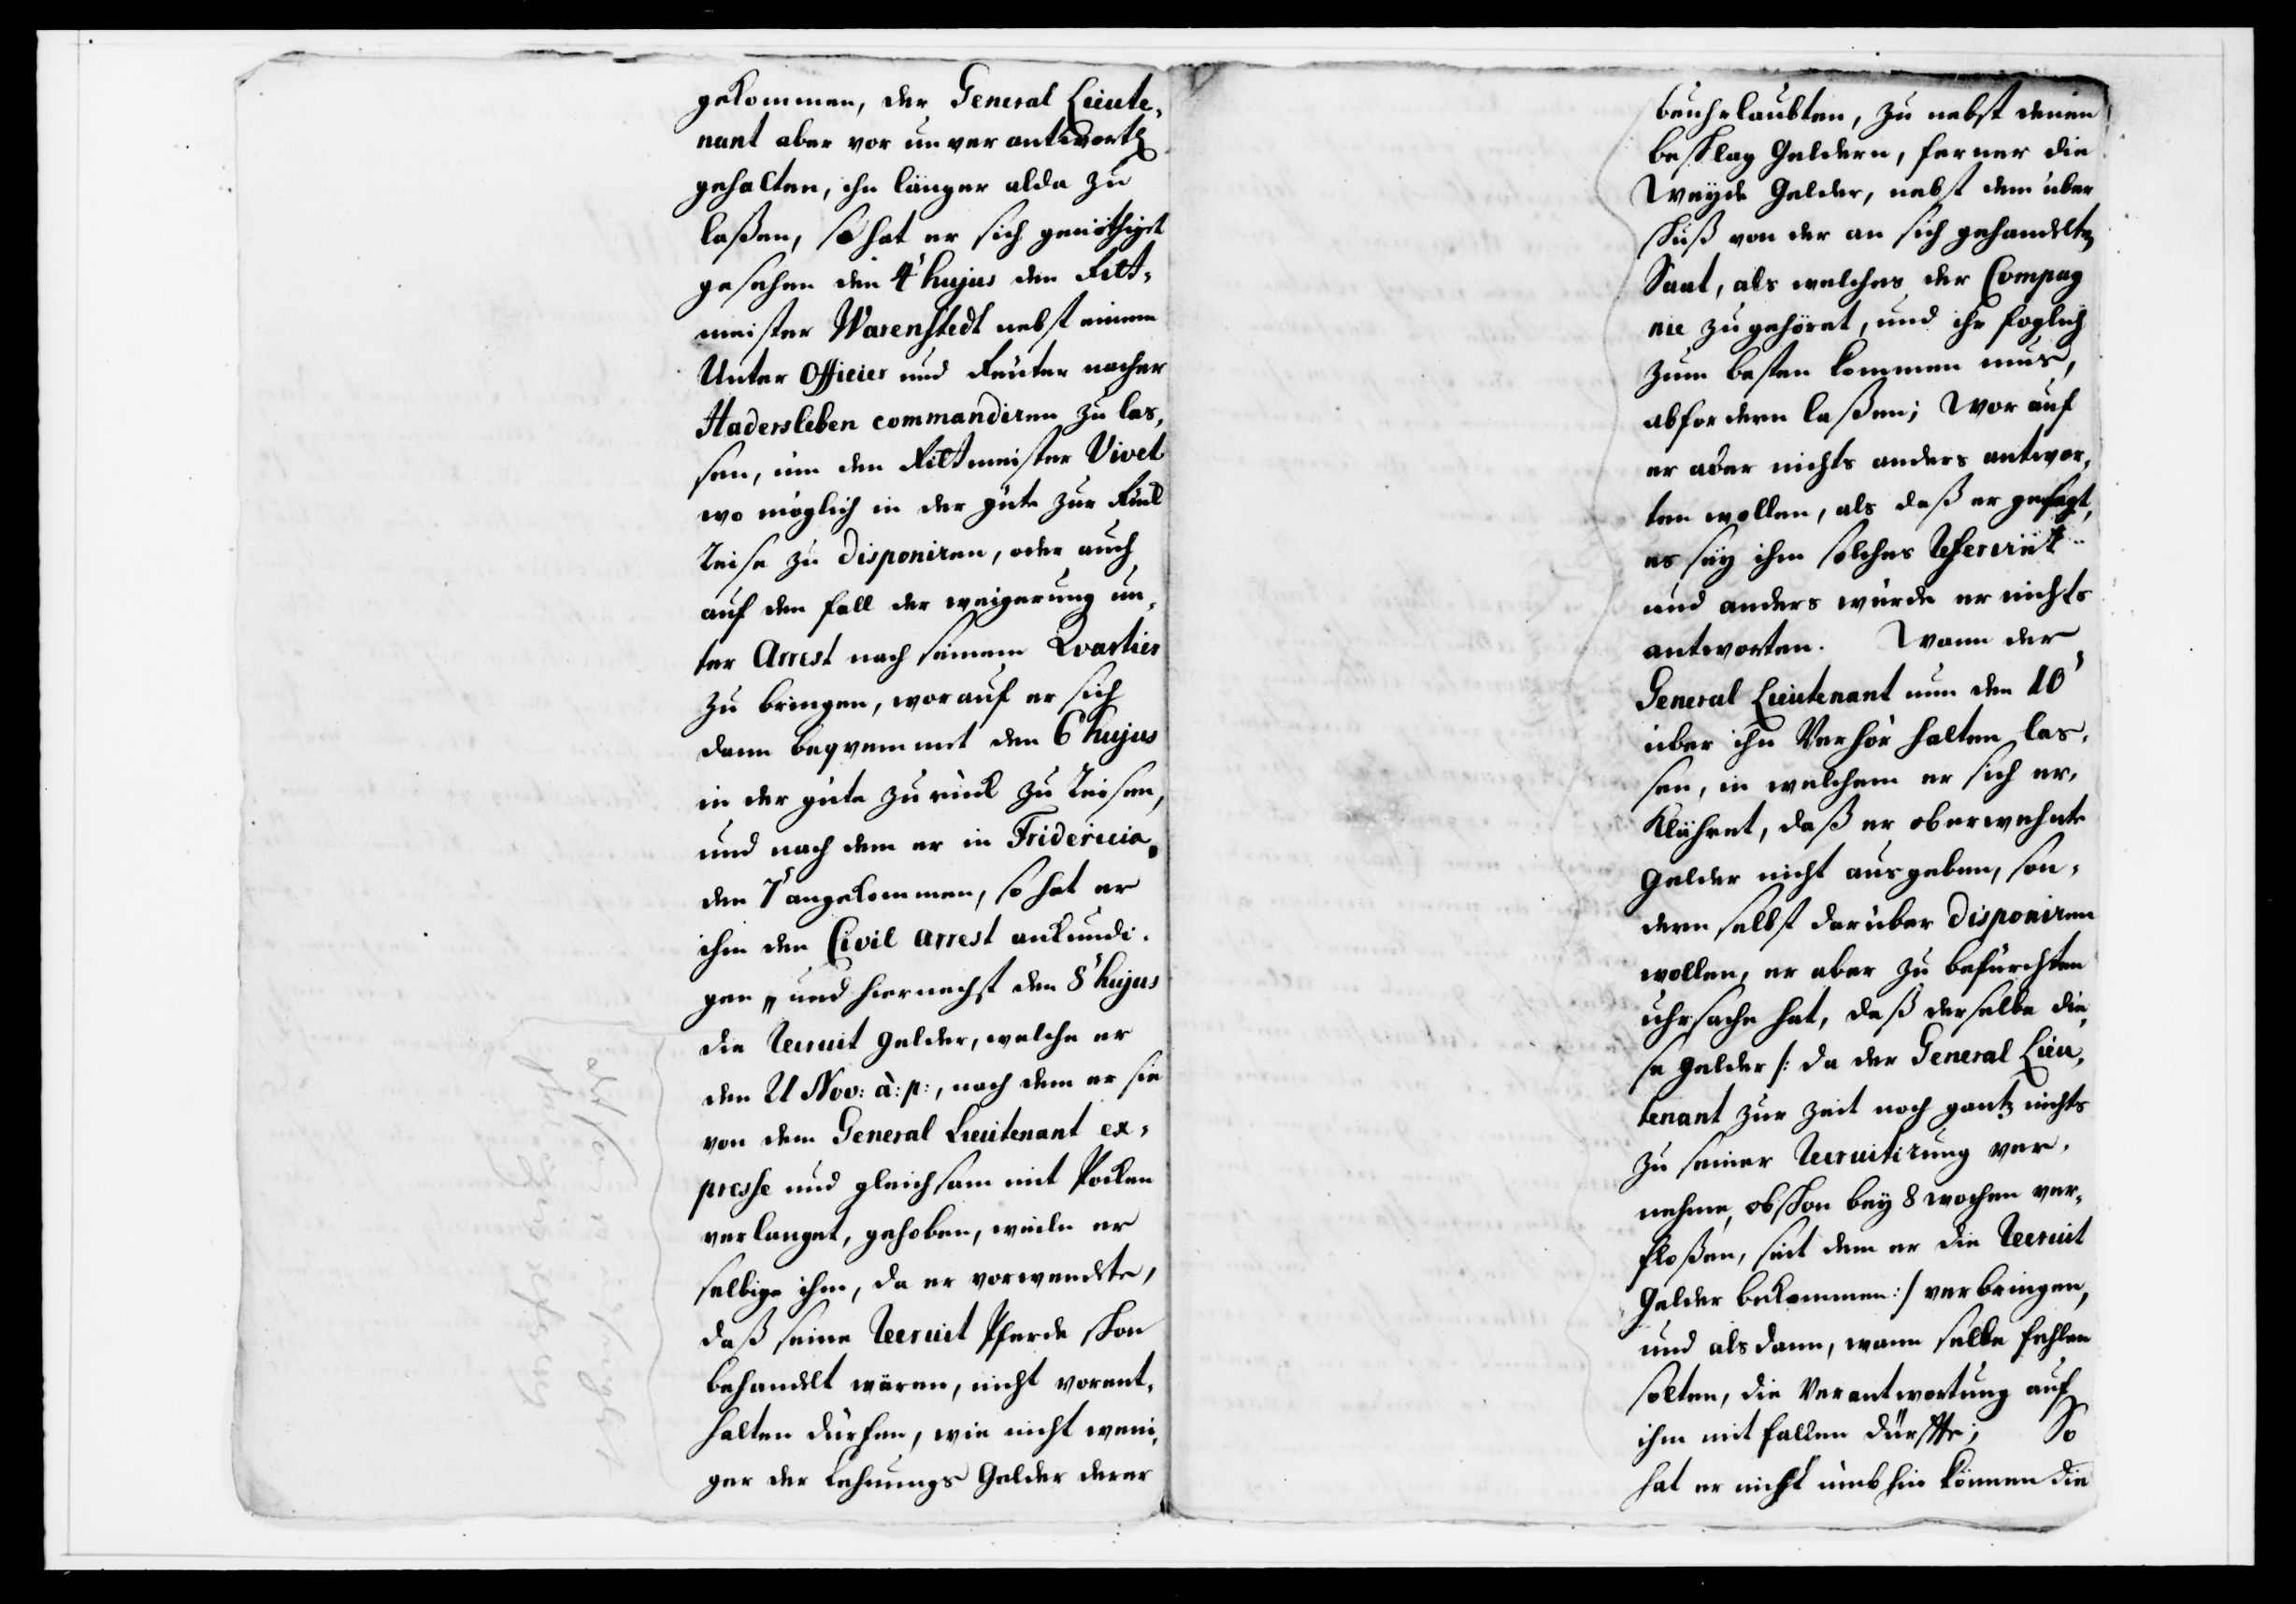 gekommen, der General Lieute-
nant aber vor unverantwortl.
gehalten, ihn länger alda zu
laßen, so hat er sich genöthiget
gesehen den 4t hujus den Ritt-
meister Warenstedt nebst einem
Unter Officier und Reuter nacher
Hadersleben commandiren zu las-
sen, um den Rittmeister Vivet
wo möglich in der güte zur Rück
Reise zu disponiren, oder auch
auf den fall der weigerung un-
ter Arrest nach seinem Qvartier
zu bringen, worauf er sich
dann beqvemmet den 6t hujus
in der güte zurück zu Reisen,
und nach dem er in Fridericia
den 7t angekommen, so hat er
ihm den Civil arrest ankundi-
gen, und hiernechst den 8t hujus
die Recruit gelder, welche er
den 21 Nov: a: p:, nach dem er sie
von dem General Lieutenant ex-
presse und gleichsam mit Pochen
verlanget, gehoben, weiln er
selbige ihm, da er vorwendete,
daß seine Recruit Pferde schon
behandelt wären, nicht vorent-
halten dürfen, wie nicht weni-
ger der Lehnungs Gelder derer
beuhrlaubten, zu nebst denen
beschlag Geldern, ferner die
Weyde Gelder, nebst dem uber
schuß von der an sich gehandelten
Saat, als welches der Compag
nie zugehöret, und ihr foglich
zum besten kommen mus,
abfordern laßen; Worauf
er aber nichts anders antwor-
ten wollen, als daß er gesagt,
es sey ihm solches
und anders würde er nichts
antworten. Wann der
General Lieutenant nun den 10t
über ihn Verhör halten las-
sen, in welchem er sich er-
klähret, daß er oberwehnte
Gelder nicht ausgeben, son-
dern selbst darüber disponiren
wollen, er aber zu befürchten
uhrsache hat, daß derselbe die-
se gelder /: da der General Lieu-
tenant zur zeit noch gantz nichts
zu seiner Recruitirung ver-
nehme, obschon bey 8 wochen ver-
floßen, seit dem er die Recruit
Gelder bekommen :/ verbringen,
und als dann, wann selbe fehlen
solten, die Verantwortung auf
ihm mit fallen dürffte; So
hat er nicht umbhin können die